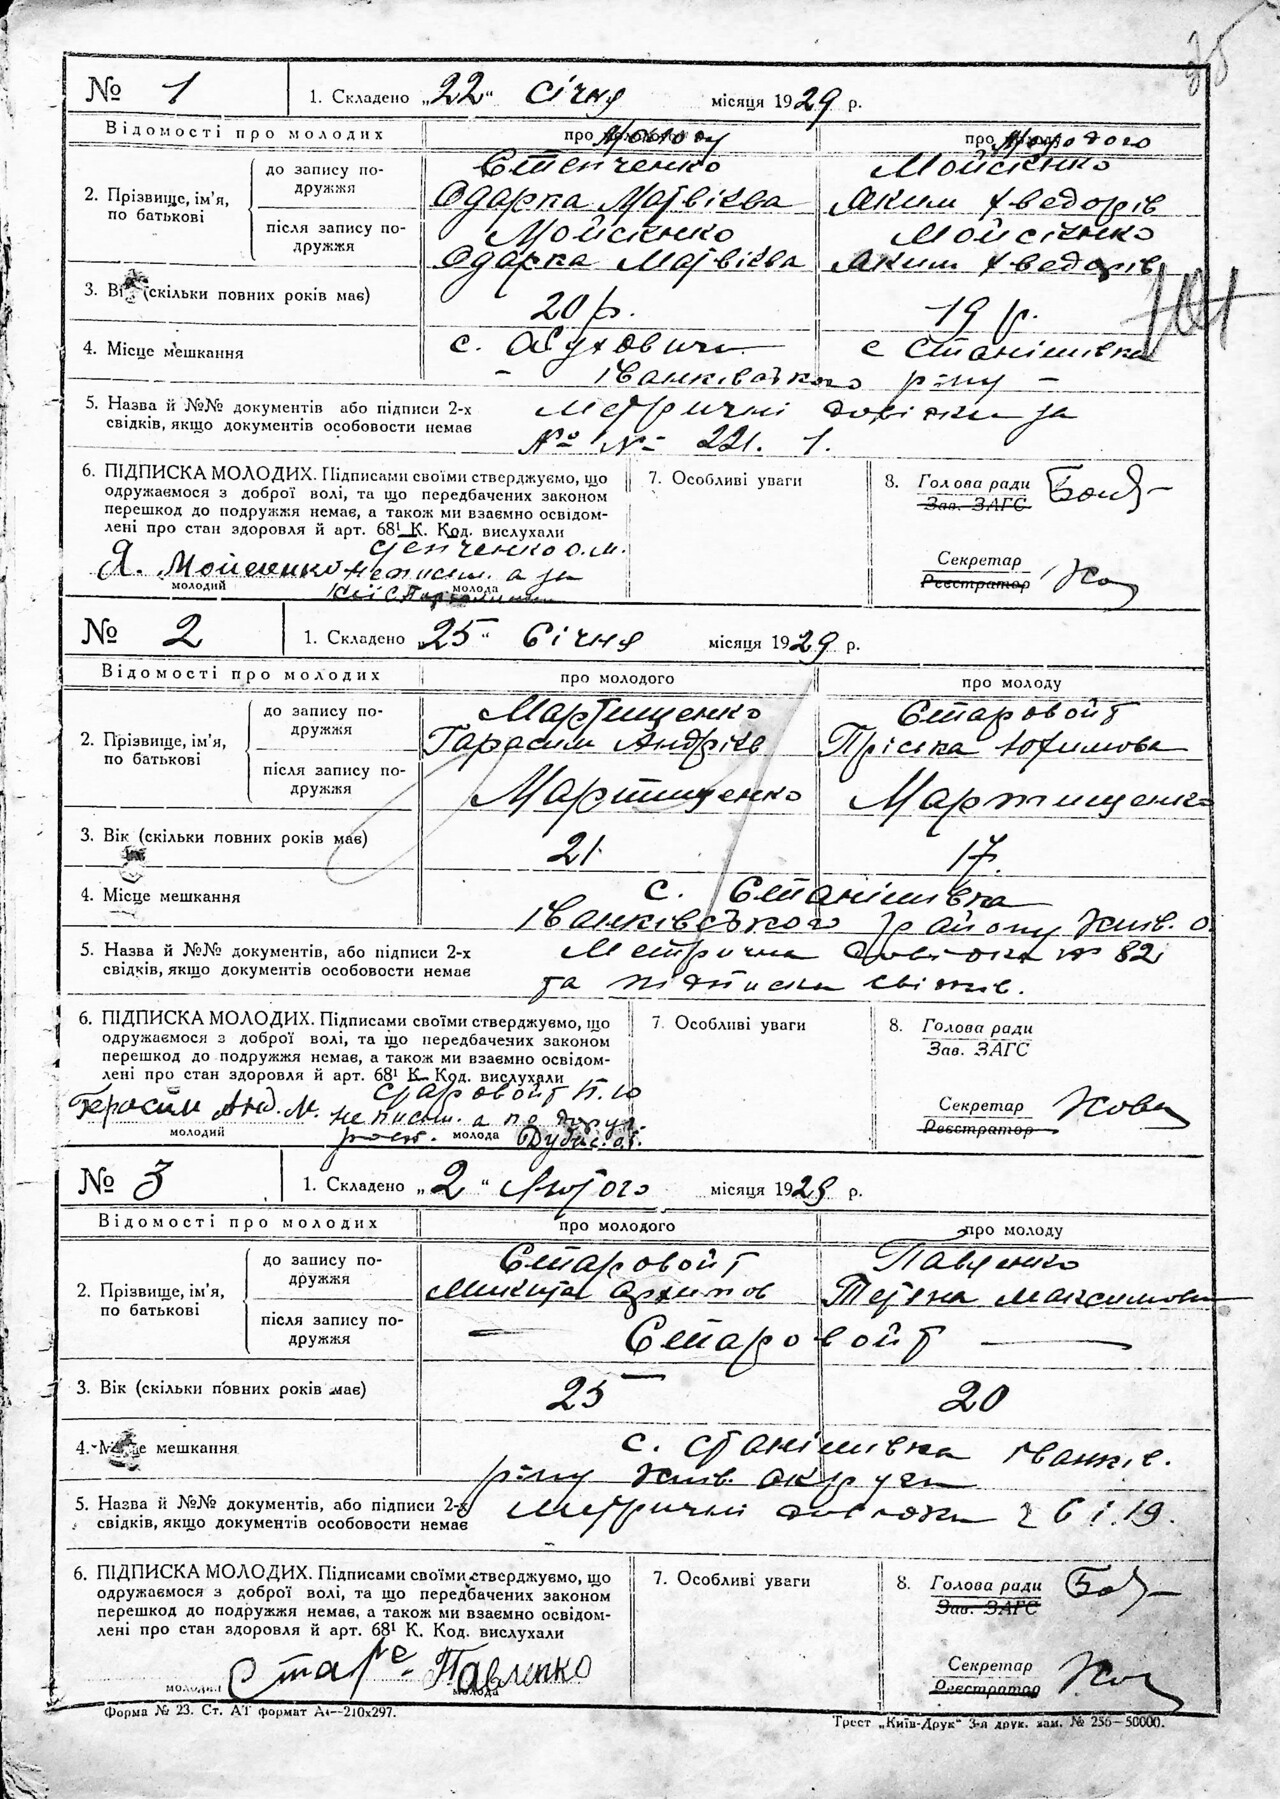 № 1
1. Складено „22“ січня місяця 1929 р.
Відомості про молодих
про молоду
про молодого
2. Прізвище, ім'я, по батькові
до запису подружжя
Степченко
Одарка Матвієва
Мойсієнко
Яким Хведорів
після запису подружжя
Мойсієнко
Одарка Матвієва
Мойсієнко
Яким Хведорів
3. Вік (скільки повних років має)
20 р.
19 р.
4. Місце мешкання
с. Обуховичі
с Станішівка
Іванківського р-ну
5. Назва й №№ документів або підписи 2-х
свідків, якщо документів особовости немає
Метричні довідки за
№ № 221. 1.
6. ПІДПИСКА МОЛОДИХ. Підписами своїми стверджуємо, що
одружаємося з доброї волі, та що передбачених законом
перешкод до подружжя немає, а також ми взаємно освідом-
лені про стан здоровля й арт. 68¹ К. Код. вислухали
Я. Мойсієнко
молодий
Степченко О. М.
неписьм. а за
молода
7. Особливі уваги
8. Голова ради
Зав. ЗАГС
Секретар
Реєстратор
№ 2
1. Складено „25“ Січня місяця 1929 р.
Відомості про молодих
про молодого
про молоду
2. Прізвище, ім'я, по батькові
до запису подружжя
Мартищенко
Гарасим Андріїв
Старовойт
Пріська Юхимова
після запису подружжя
Мартищенко
Мартищенко
3. Вік (скільки повних років має)
21
17
4. Місце мешкання
с. Станішівка
Іванківського району Київ. о.
5. Назва й №№ документів, або підписи 2-х
свідків, якщо документів особовости немає
Метрична довідка № 82
та підписки свідків.
6. ПІДПИСКА МОЛОДИХ. Підписами своїми стверджуємо, що
одружаємося з доброї волі, та що передбачених законом
перешкод до подружжя немає, а також ми взаємно освідом-
лені про стан здоровля й арт. 68¹ К. Код. вислухали
Герасим Анд. М.
молодий
Старовойт П. Ю
неписьм. а по доруч.
молода
7. Особливі уваги
8. Голова ради
Зав. ЗАГС
Секретар
Реєстратор
№ 3
1. Складено „2“ Лютого місяця 1929 р.
Відомості про молодих
про молодого
про молоду
2. Прізвище, ім'я, по батькові
до запису подружжя
Старовойт
Микита Архипов
Павленко
Тетяна Максимова
після запису подружжя
— Старовойт —
3. Вік (скільки повних років має)
25
20
4. Місце мешкання
с. Станішівка Іванків.
р-ну Київ. округи
5. Назва й №№ документів, або підписи 2-х
свідків, якщо документів особовости немає
Метричні довідки 26 і 19.
6. ПІДПИСКА МОЛОДИХ. Підписами своїми стверджуємо, що
одружаємося з доброї волі, та що передбачених законом
перешкод до подружжя немає, а також ми взаємно освідом-
лені про стан здоровля й арт. 68¹ К. Код. вислухали
молодий
Павленко
молода
7. Особливі уваги
8. Голова ради
Зав. ЗАГС
Секретар
Реєстратор
Форма № 23. Ст. АТ формат А4—210х297.
Трест „Київ-Друк“ 3-я друк. зам. № 256—50000.